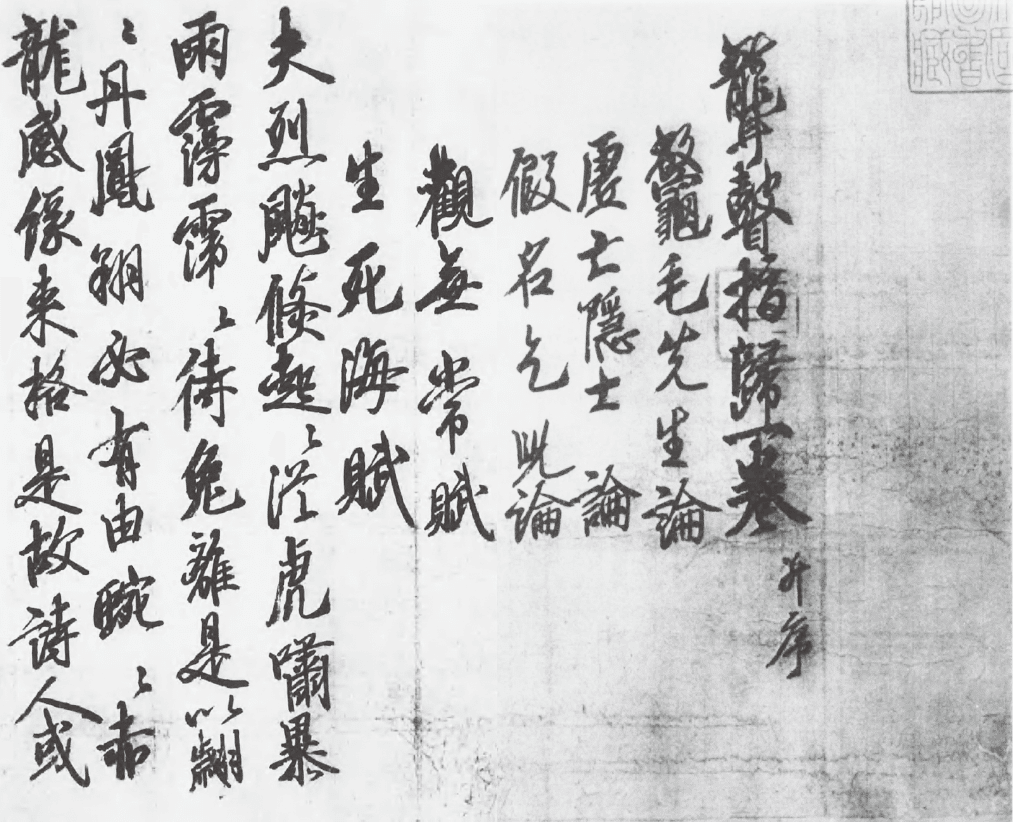 聾瞽指歸一卷 并序
鼇毛先生論
虛亡隱士論
假名乞児論
觀無常賦
生死海賦
夫烈飈倏起〻從虎嘯暴
雨霶霈〻待兔離是以翩
〻丹鳳翔必有由蜿〻赤
龍感緣来格是故詩人或